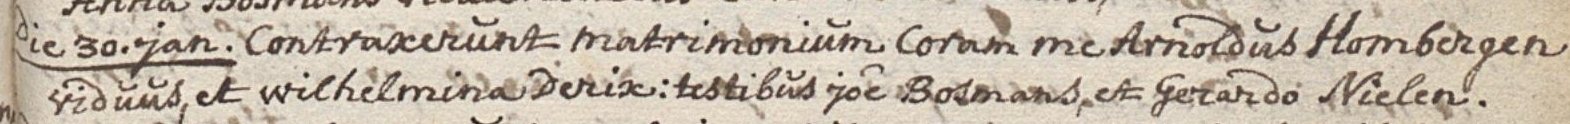 Die 30. jan. Contraxerunt matrimonium Coram me Arnoldus Hombergen
viduus, et wilhelmina Derix: testibus joē Bosmans, et Gerardo Nielen.